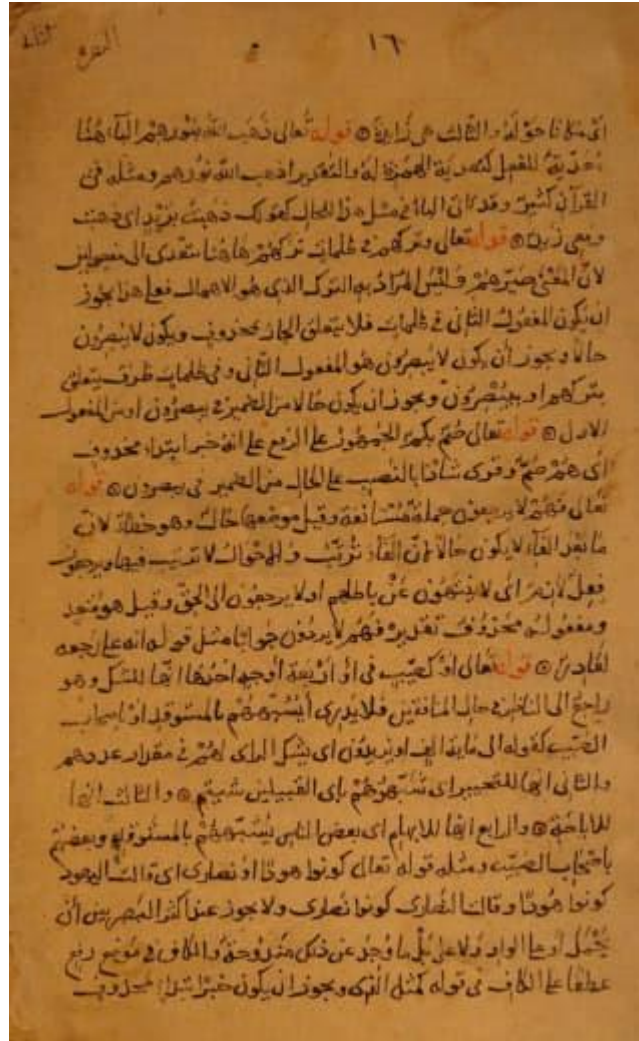 البقرة
١٦
اى مكانا حوله والثالث هى زايدة قوله تعالى ذهب الله بنورهم الباء هنا
معدّية للفعل كتعدية الهمزة له والتقدير اذهب الله نورهم ومثله فى
القرآن كثير وقد تاتى الباء فى مثل هذا للحال كقولك ذهبت بزيد اى ذهبت
ومعى زيد قوله تعالى وتركهم فى ظلمات تركهم هاهنا يتعدى الى مفعولين
لانّ المعنى صيّرهم وليس المراد به الترك الذى هو الاهمال فعلى هذا يجوز
ان يكون المفعول الثانى فى ظلمات فلا يتعلق الجار بمحذوف ويكون لا يبصرون
حالا ويجوز أن يكون لا يبصرون هو المفعول الثانى وفى ظلمات ظرف يتعلق
بتركهم او بيبصرون ويجوز ان يكون حالا من الضمير فى يبصرون او من المفعول
الاول قوله تعالى صمّ بكم الجمهور على الرفع على انه خبر ابتداء محذوف
أى هم صمّ وقرى شاذا بالنصب على الحال من الضمير فى يبصرون قوله
تعالى فهم لا يرجعون جملة مستانفة وقيل موضعها حال وهو خطأ لانّ
ما بعد الفاء لا يكون حالا لانّ الفاء ترتّب والاحوال لا ترتيب فيها ويرجعون
فعل لازم اى لا ينتهون عن باطلهم او لا يرجعون الى الحق وقيل هو متعد
ومفعوله محذوف تقديره فهم لا يردّون جوابا مثل قوله انه على رجعه
لقادر قوله تعالى او كصيّب فى او اربعة أوجه احدها انها للشك وهو
راجع الى الناظر فى حال المنافقين فلا يدرى أيشبههم بالمستوقد او باصحاب
الصيّب كقوله الى ماية الف او يزيدون اى يشكّ الرائى لهم فى مقدار عددهم
والثانى انها للتخيير اى شبّهوهم باى القبيلين شيتم والثالث انها
للاباحة والرابع انها للابهام اى بعض الناس يشبّههم بالمستوقد وبعضهم
باصحاب الصيّب ومثله قوله تعالى كونوا هودا او نصارى اى قالت اليهود
كونوا هودا وقالت النصارى كونوا نصارى ولا يجوز عند اكثر البصريين أن
يحمل او على الواو ولا على بل ما وجد عن ذلك مندوحة والكاف فى موضع رفع
عطفا على الكاف فى قوله كمثل الذى ويجوز ان يكون خبر ابتداء محذوف